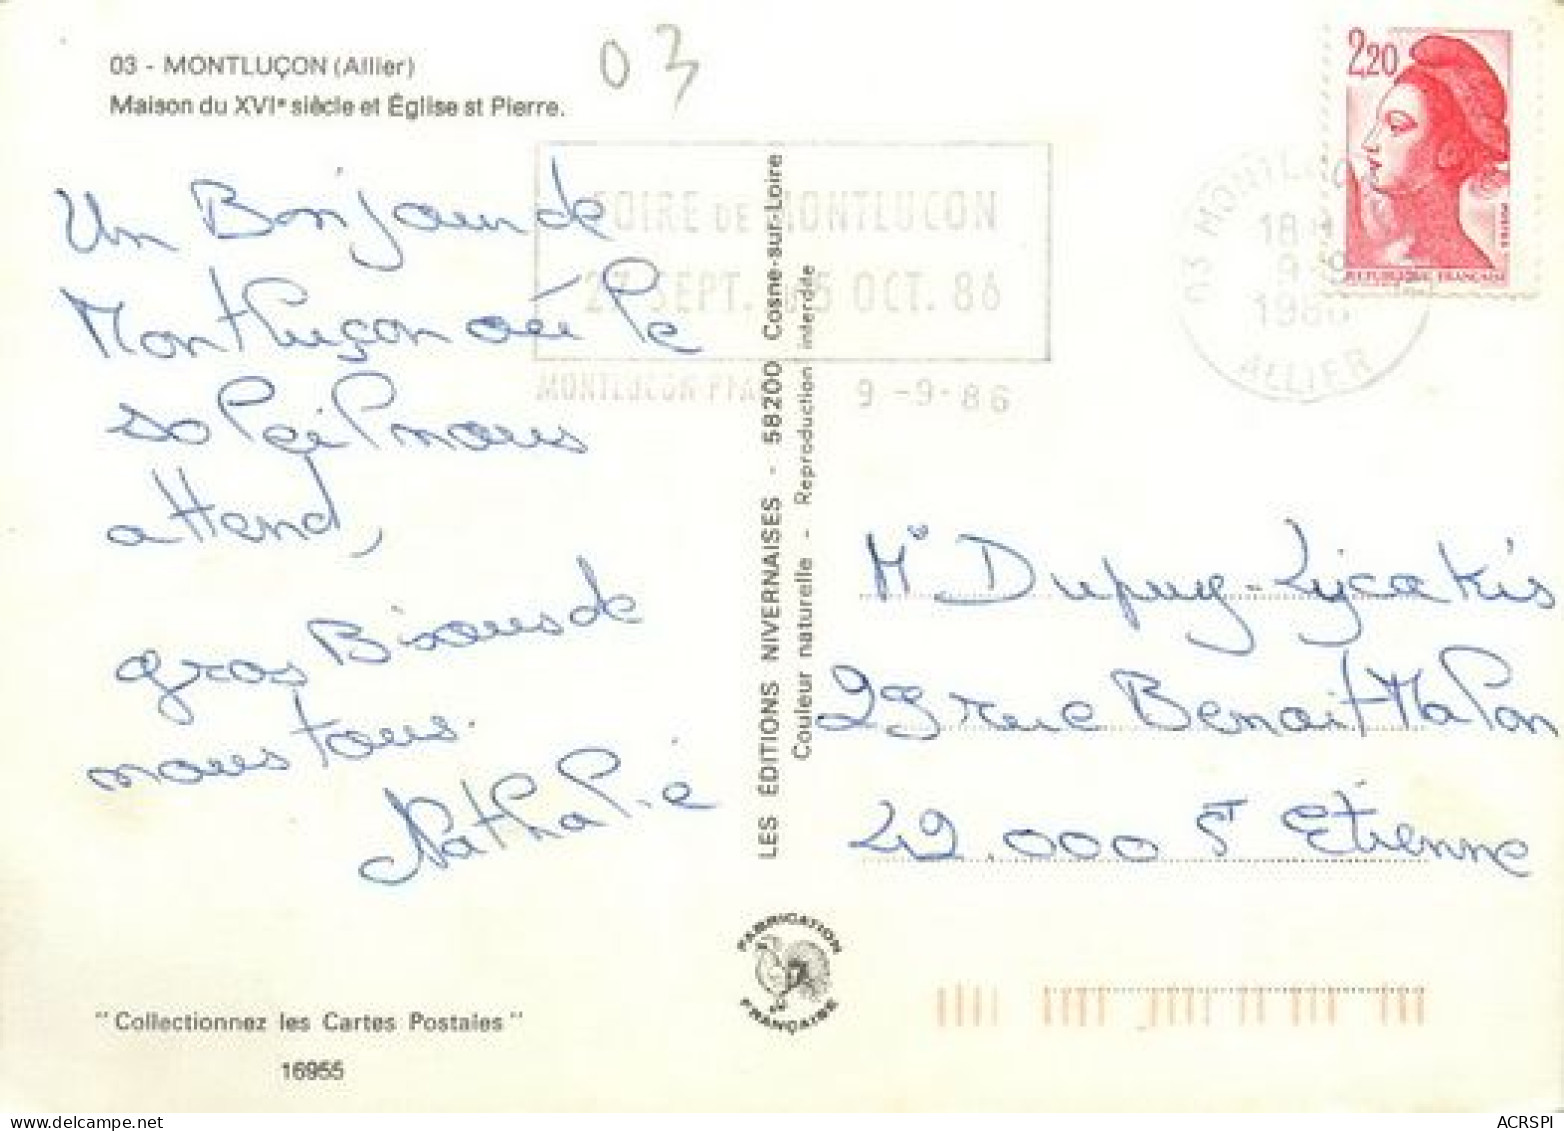 03 - MONTLUÇON (Allier)
Maison du XVIe siècle et Église st Pierre.
03
Un Bonjour de
Montluçon où le
soleil nous
attend,
gros Bisous de
nous tous.
Nathalie
"Collectionnez les Cartes Postales"
16955
LES ÉDITIONS NIVERNAISES - 58200 Cosne-sur-Loire
Couleur naturelle - Reproduction interdite
FABRICATION
FRANÇAISE
FOIRE DE MONTLUCON
27 SEPT. 5 OCT. 86
MONTLUCON
9 -9-86
2,20
REPUBLIQUE FRANÇAISE
POSTES
03 MONTLUCON
18 H
9-9
1986
ALLIER
Mr Dupuy-Lycakis
29 rue Benoit Malon
42.000 ST Etienne
ACRSPI